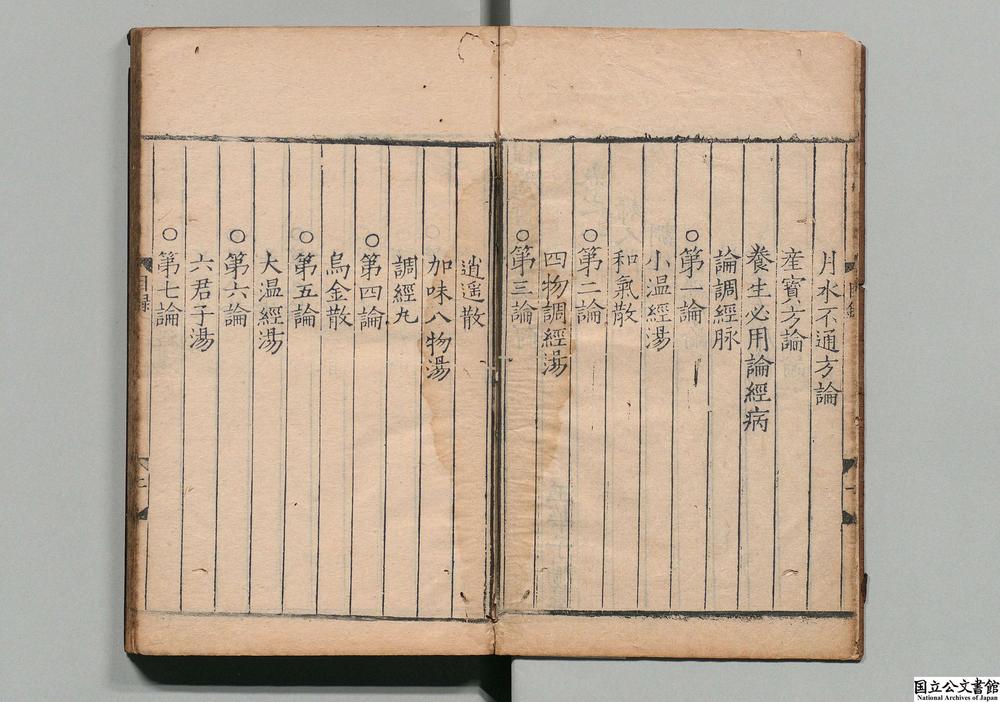 月水不通方論
産寶方論
養生必用論經病
論調經脉
○第一論
小温經湯
和氣散
○第二論
四物調經湯
○第三論
逍遥散
加味八物湯
調經丸
○第四論
烏金散
○第五論
大温經湯
○第六論
六君子湯
○第七論
国立公文書館
National Archives of Japan